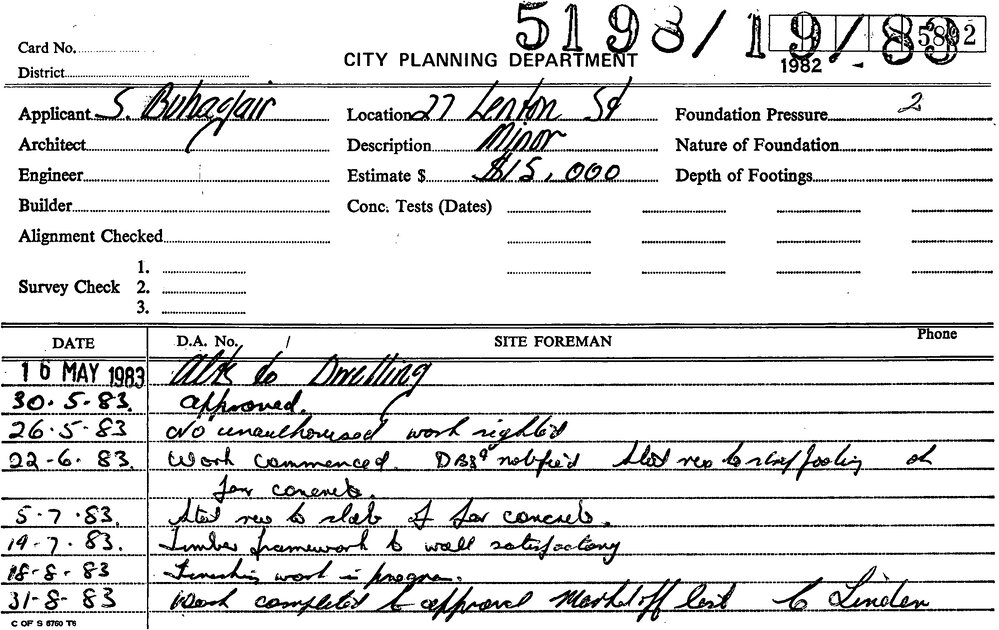 5198/19/83 15892
Card No.
CITY PLANNING DEPARTMENT
1982
District
Applicant S. Buhagiar Location 27 Lenton St Foundation Pressure 2
Architect Description Minor Nature of Foundation
Engineer Estimate $ $15,000 Depth of Footings
Builder Conc. Tests (Dates)
Alignment Checked
1.
Survey Check 2.
3.
DATE D.A. No. / SITE FOREMAN Phone
16 MAY 1983 Alts to Dwelling
30.5.83. approved.
26.5.83 No unauthorised work sighted
22-6.83. Work commenced. notified Steel reo to footing ok
for concrete.
5.7.83. Steel reo to slab for concrete.
19-7.83. Timber framework to wall satisfactory
18-8-83 Finishing work in progress.
31-8-83 Work completed to approval Mark off list C Linden
C OF S 6760 T6